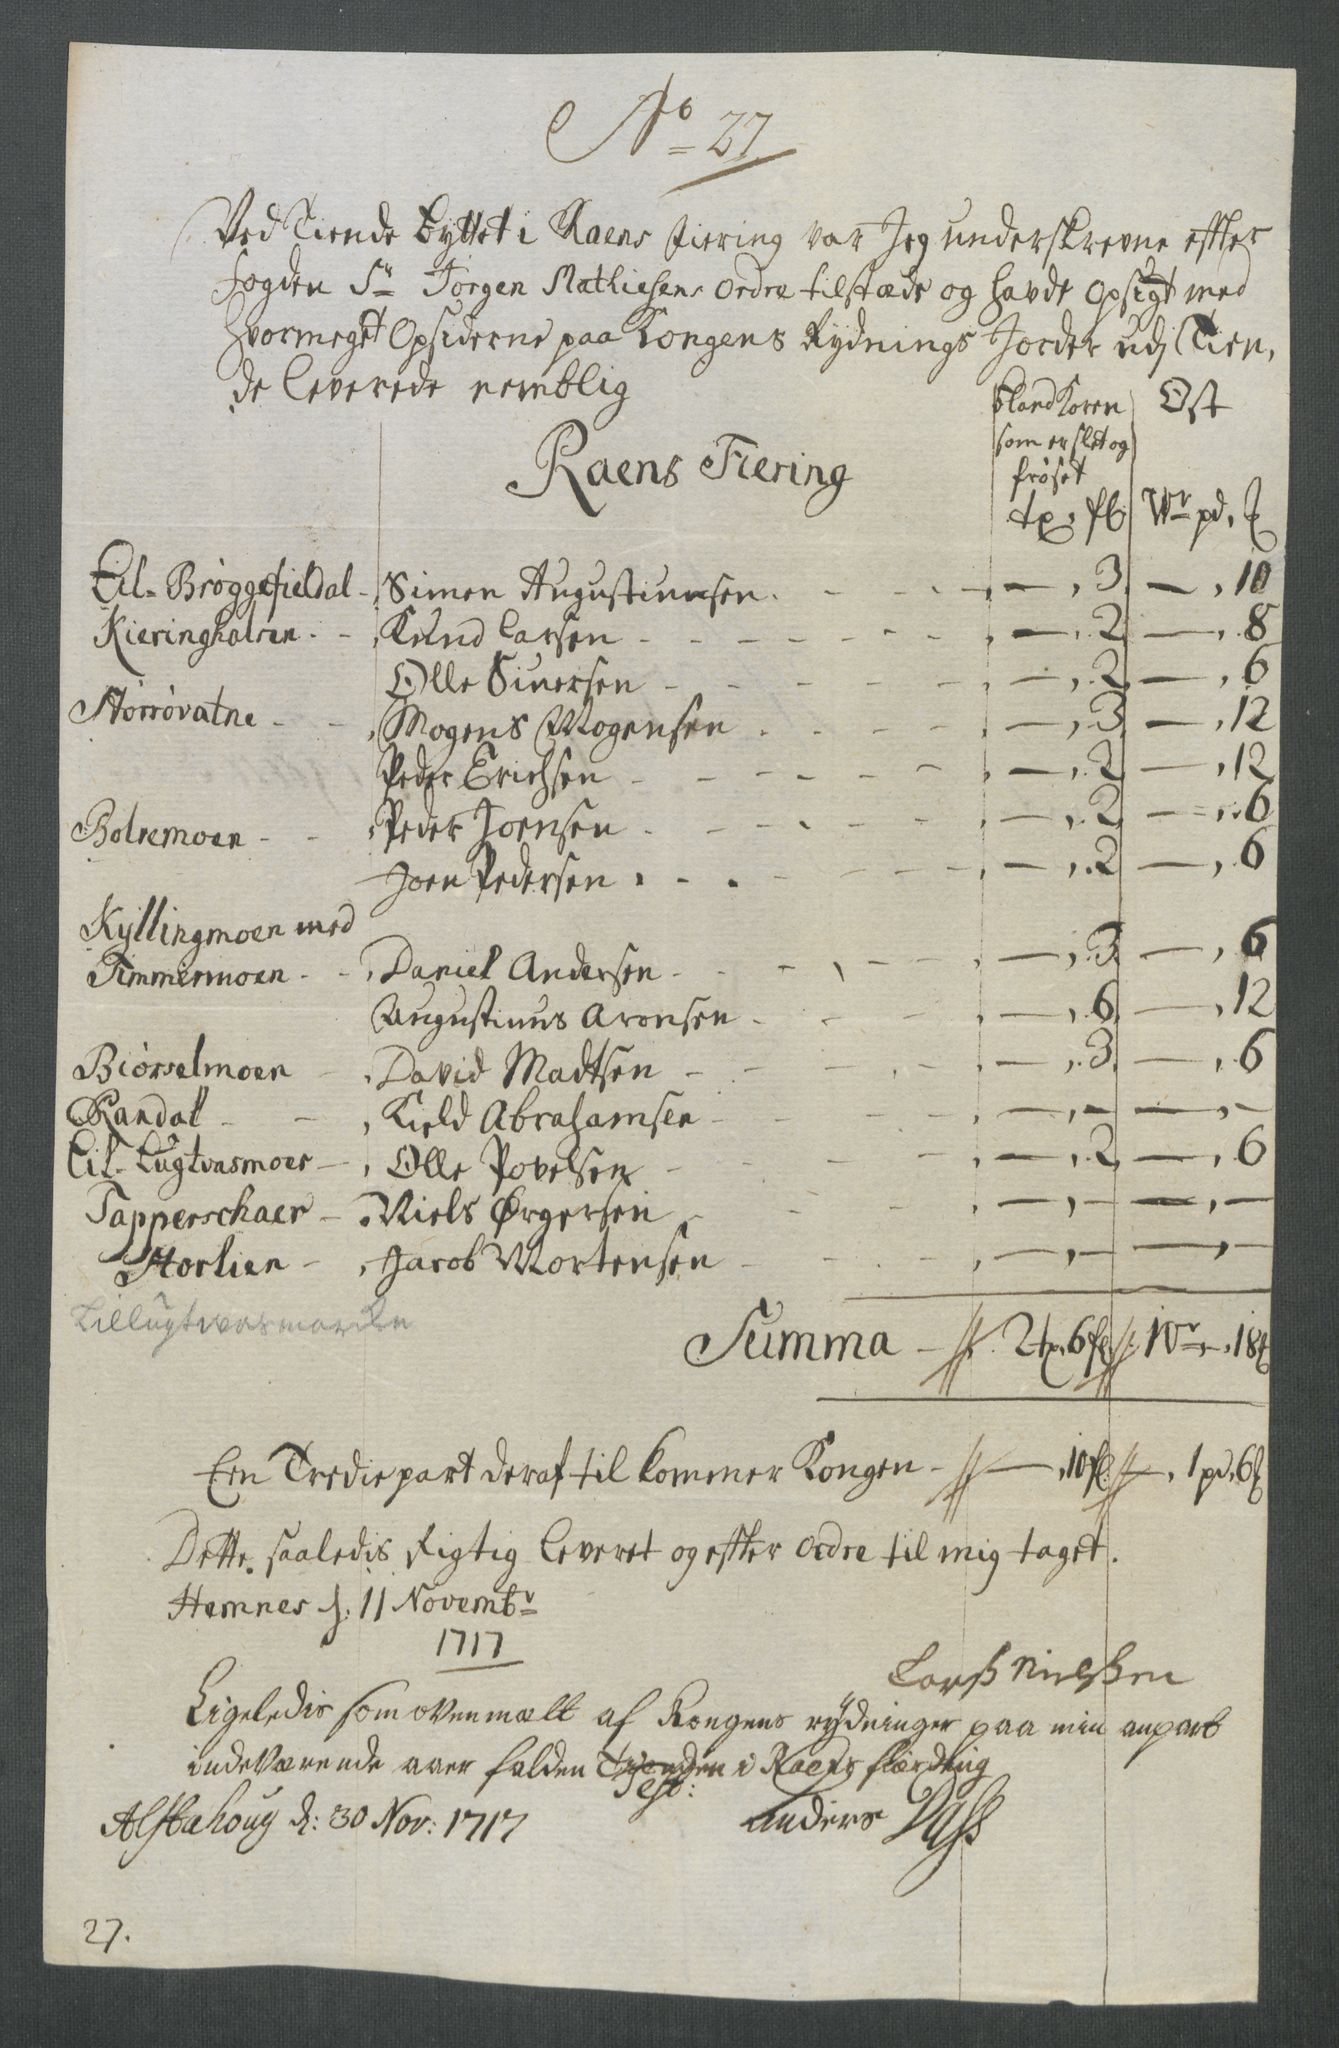 No 27
Ved Tiende byttet i Raens fiering var Jeg underskrevne effter
fogden Sr Jörgen Mathiesens ordre tilstæde og havde opsigt med
hvormeget opsiderne paa Kongens Rydnings Jorder udj Tien,
de leverede nemblig
bland Koren Ost
som er slet og
frøset
Raens Fiering
tp, fl Wr pd,
Lil- Brøggefieldal - Simon Augustinusen - , 3 - , 10
Kieringhalsen - Knud Larsen - , 2 - , 8
Olle Siuersen - , 2 - , 6
Storrøvatne - Mogens Mogensen - , 3 - , 12
Peder Erichsen - , 2 - , 12
Bolremoen - Peder Joensen - , 2 - , 6
Joen Pedersen - , 2 - , 6
Kyllingmoen med
Timmermoen - Daniel Andersen - , 3 - , 6
Augustinus Aronsen - , 6 - , 12
Biörselmoen - David Madtsen - , 3 - , 6
Randal - Kield Abrahamsen - , - - , -
Lil- Lugtvasmoer - Olle Povelsen - , 2 - , 6
Tapperschaer - Niels Ørgersen - , - - , -
Storlien - Jacob Mortensen - , - - , -
Lillugtvasmarken
Summa - 2 tp, 6 fl 1 Wr - , 18
Een Tredie part deraf til kommer Kongen - , 10 fl - , 1 pd, 6
Dette saaledis Rigtig leveret og effter ordre til mig taget.
Hemnes d. 11 Novembr
1717
Larß Nielßen
Ligeledis som ovenmælt af Kongens rydninger paa min anpart
indeværende aaer falden Tienden i Raens fierding
Test:
Alstahoug d: 30 Nov: 1717 Anders Dass
27.